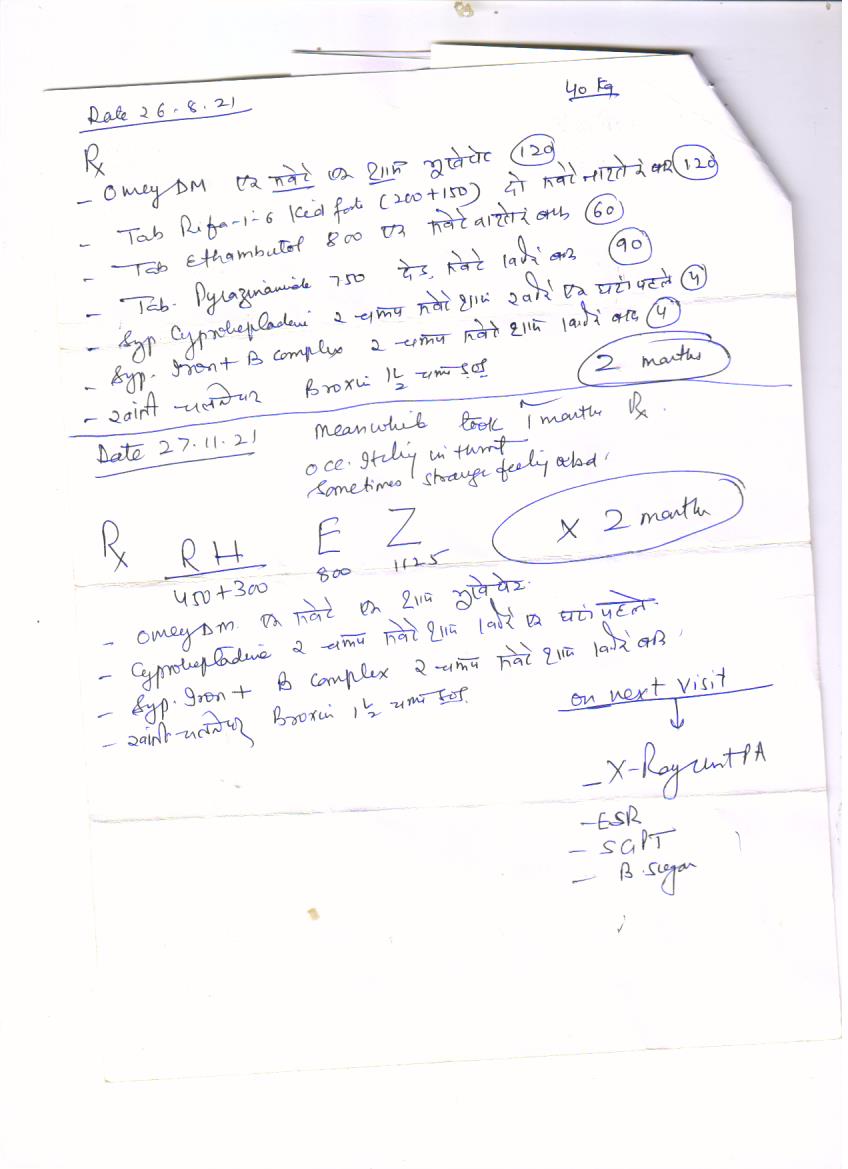 Date 26.8.21
40 Kg
Rx
- Omey DM एक सवेरे एक शाम भूखे पेट (120)
- Tab Rifa-i-6 Kid forte (200+150) दो सवेरे नाश्ते के बाद (120)
- Tab Ethambutol 800 एक सवेरे नाश्ते के बाद (60)
- Tab. Pyrazinamide 750 डेढ़ सवेरे खाने के बाद (90)
- Syp Cyproheptadine 2 चम्मच सवेरे शाम खाने से एक घंटा पहले (4)
- Syp. Iron + B complex 2 चम्मच सवेरे शाम खाने के बाद (4)
- खांसी चलने पर Broxin 1½ चम्मच
2 months
Date 27.11.21 Meanwhile took 1 months Rx.
occ. Itching in throat
Sometimes strange feeling
Rx RH E Z x 2 months
450+300 800 1125
- Omey DM एक सवेरे एक शाम भूखे पेट
- Cyproheptadine 2 चम्मच सवेरे शाम खाने से एक घंटा पहले
- Syp. Iron + B complex 2 चम्मच सवेरे शाम खाने के बाद
- खांसी चलने पर Broxin 1½ चम्मच
on next visit
- X-Ray chest PA
- ESR
- SGPT
- B. Sugar